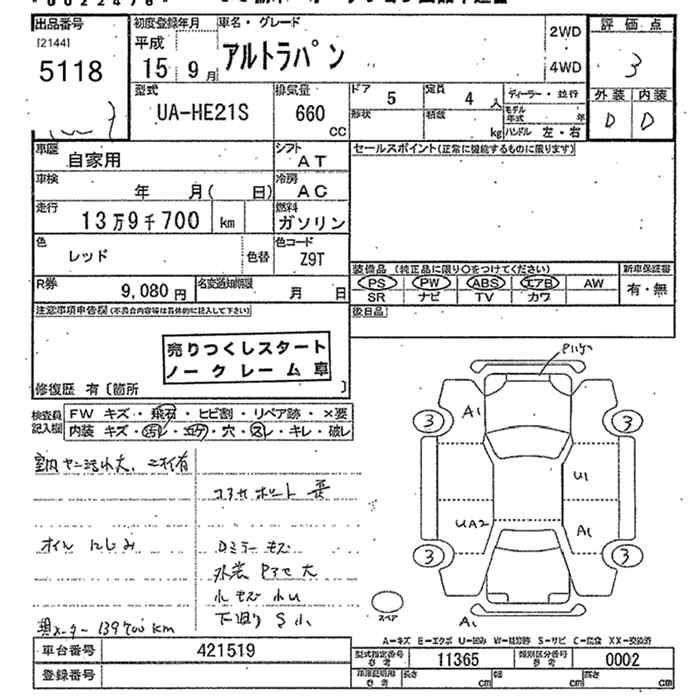 出品番号
[2144]
5118
初度登録年月
平成
15 年 9 月
車名・グレード
アルトラパン
2WD
4WD
評価点
3
外装 内装
D D
型式
UA-HE21S
排気量
660
cc
ドア
5
定員
4 人
形状
積載
kg
ディーラー・並行
モデル年式 年
ハンドル 左・右
車歴
自家用
シフト
AT
車検
年 月( 日)
冷房
AC
走行
13万9千700 km
燃料
ガソリン
色
レッド
色替
色コード
Z9T
R券
9,080 円
名変通知期限
月 日
セールスポイント(正常に機能するものに限ります)
装備品 (純正品に限り○をつけてください)
PS PW ABS エアB AW
SR ナビ TV カワ
新車保証書
有・無
後日品
注意事項申告欄(不具合内容等は具体的に記入して下さい)
売りつくしスタート
ノークレーム車
修復歴 有〔箇所 〕
検査員
記入欄
FW キズ・飛石・ヒビ割・リペア跡・×要
内装 キズ・汚レ・コゲ・穴・スレ・キレ・破レ
オイルにじみ
Dミラーキズ
小キズ 小U
下廻り S小
奥メーター 139700km
A1
3
3
U1
UA2
A1
3
3
スペア
A1
A-キズ E-エクボ U-凹み W-補修跡 S-サビ C-腐食 XX-交換済
車台番号
421519
登録番号
型式指定番号
参考
11365
類別区分番号
参考
0002
長さ cm
幅 cm
高さ cm